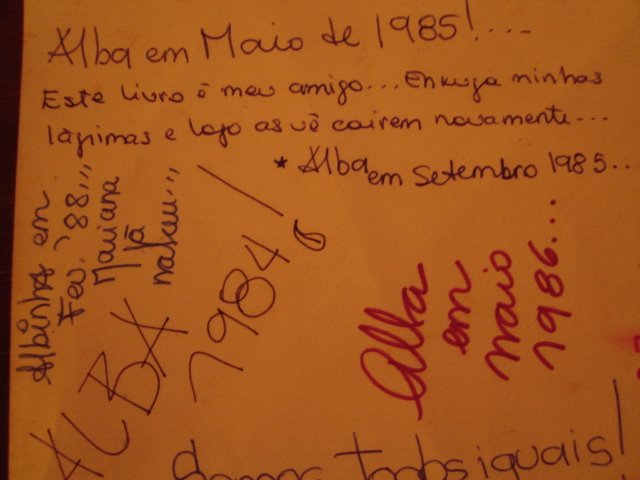 Alba em Maio de 1985!....
Este livro é meu amigo... Enxuga minhas
lágrimas e logo as vê cairem novamente...
* Alba em Setembro 1985..
Albinha em
Fev. '88...
Mariana
já
nasceu...
ALBA
1984!
Alba
em
maio
1986...
Somos todos iguais!